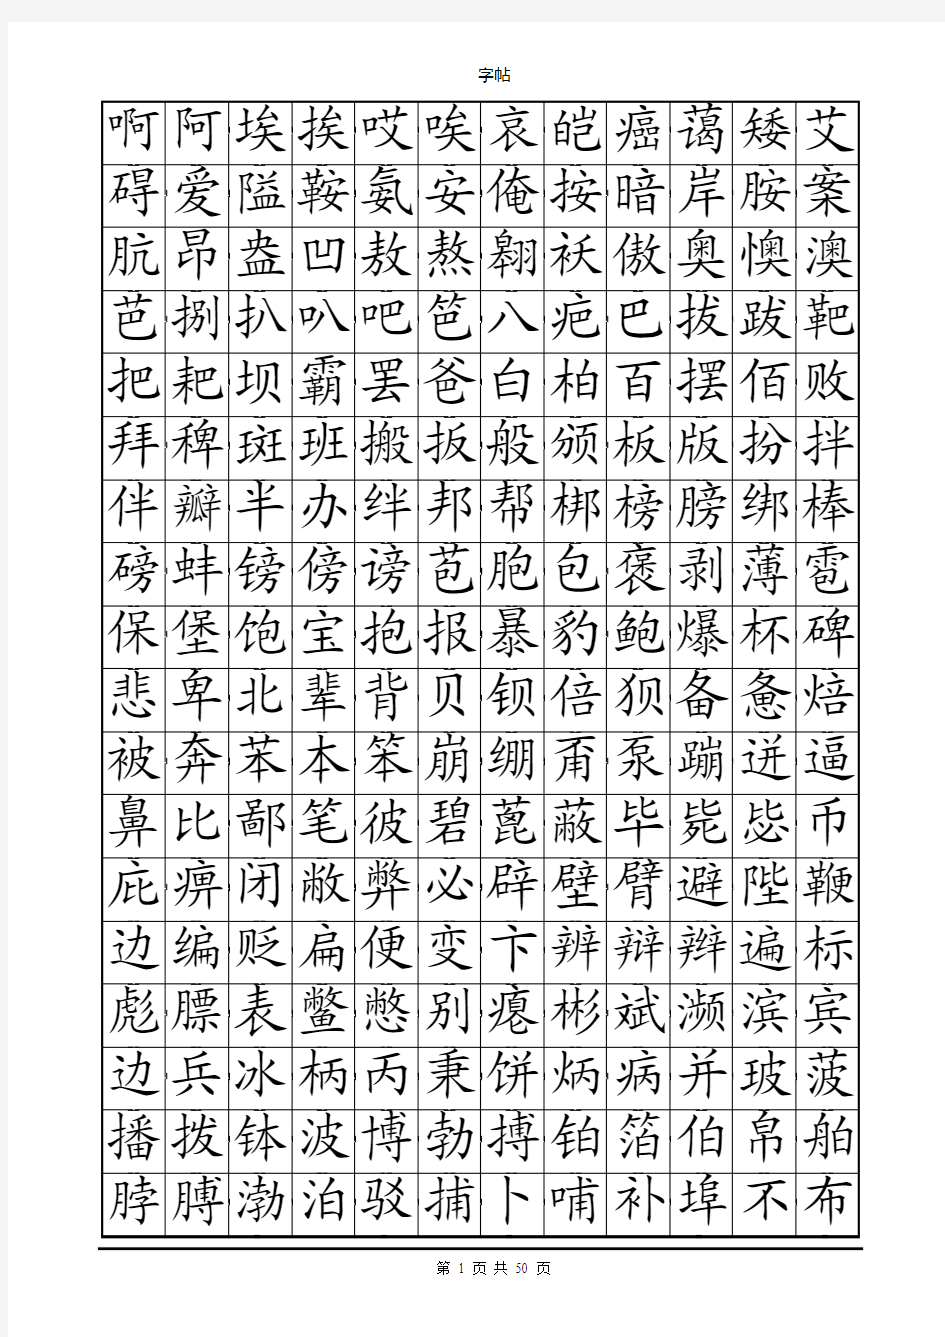 字帖
啊阿埃挨哎唉哀皑癌蔼矮艾
碍爱隘鞍氨安俺按暗岸胺案
肮昂盎凹敖熬翱袄傲奥懊澳
芭捌扒叭吧笆八疤巴拔跋靶
把耙坝霸罢爸白柏百摆佰败
拜稗斑班搬扳般颁板版扮拌
伴瓣半办绊邦帮梆榜膀绑棒
磅蚌镑傍谤苞胞包褒剥薄雹
保堡饱宝抱报暴豹鲍爆杯碑
悲卑北辈背贝钡倍狈备惫焙
被奔苯本笨崩绷甭泵蹦迸逼
鼻比鄙笔彼碧蓖蔽毕毙毖币
庇痹闭敝弊必辟壁臂避陛鞭
边编贬扁便变卞辨辩辫遍标
彪膘表鳖憋别瘪彬斌濒滨宾
边兵冰柄丙秉饼炳病并玻菠
播拨钵波博勃搏铂箔伯帛舶
脖膊渤泊驳捕卜哺补埠不布
第 1 页 共 50 页